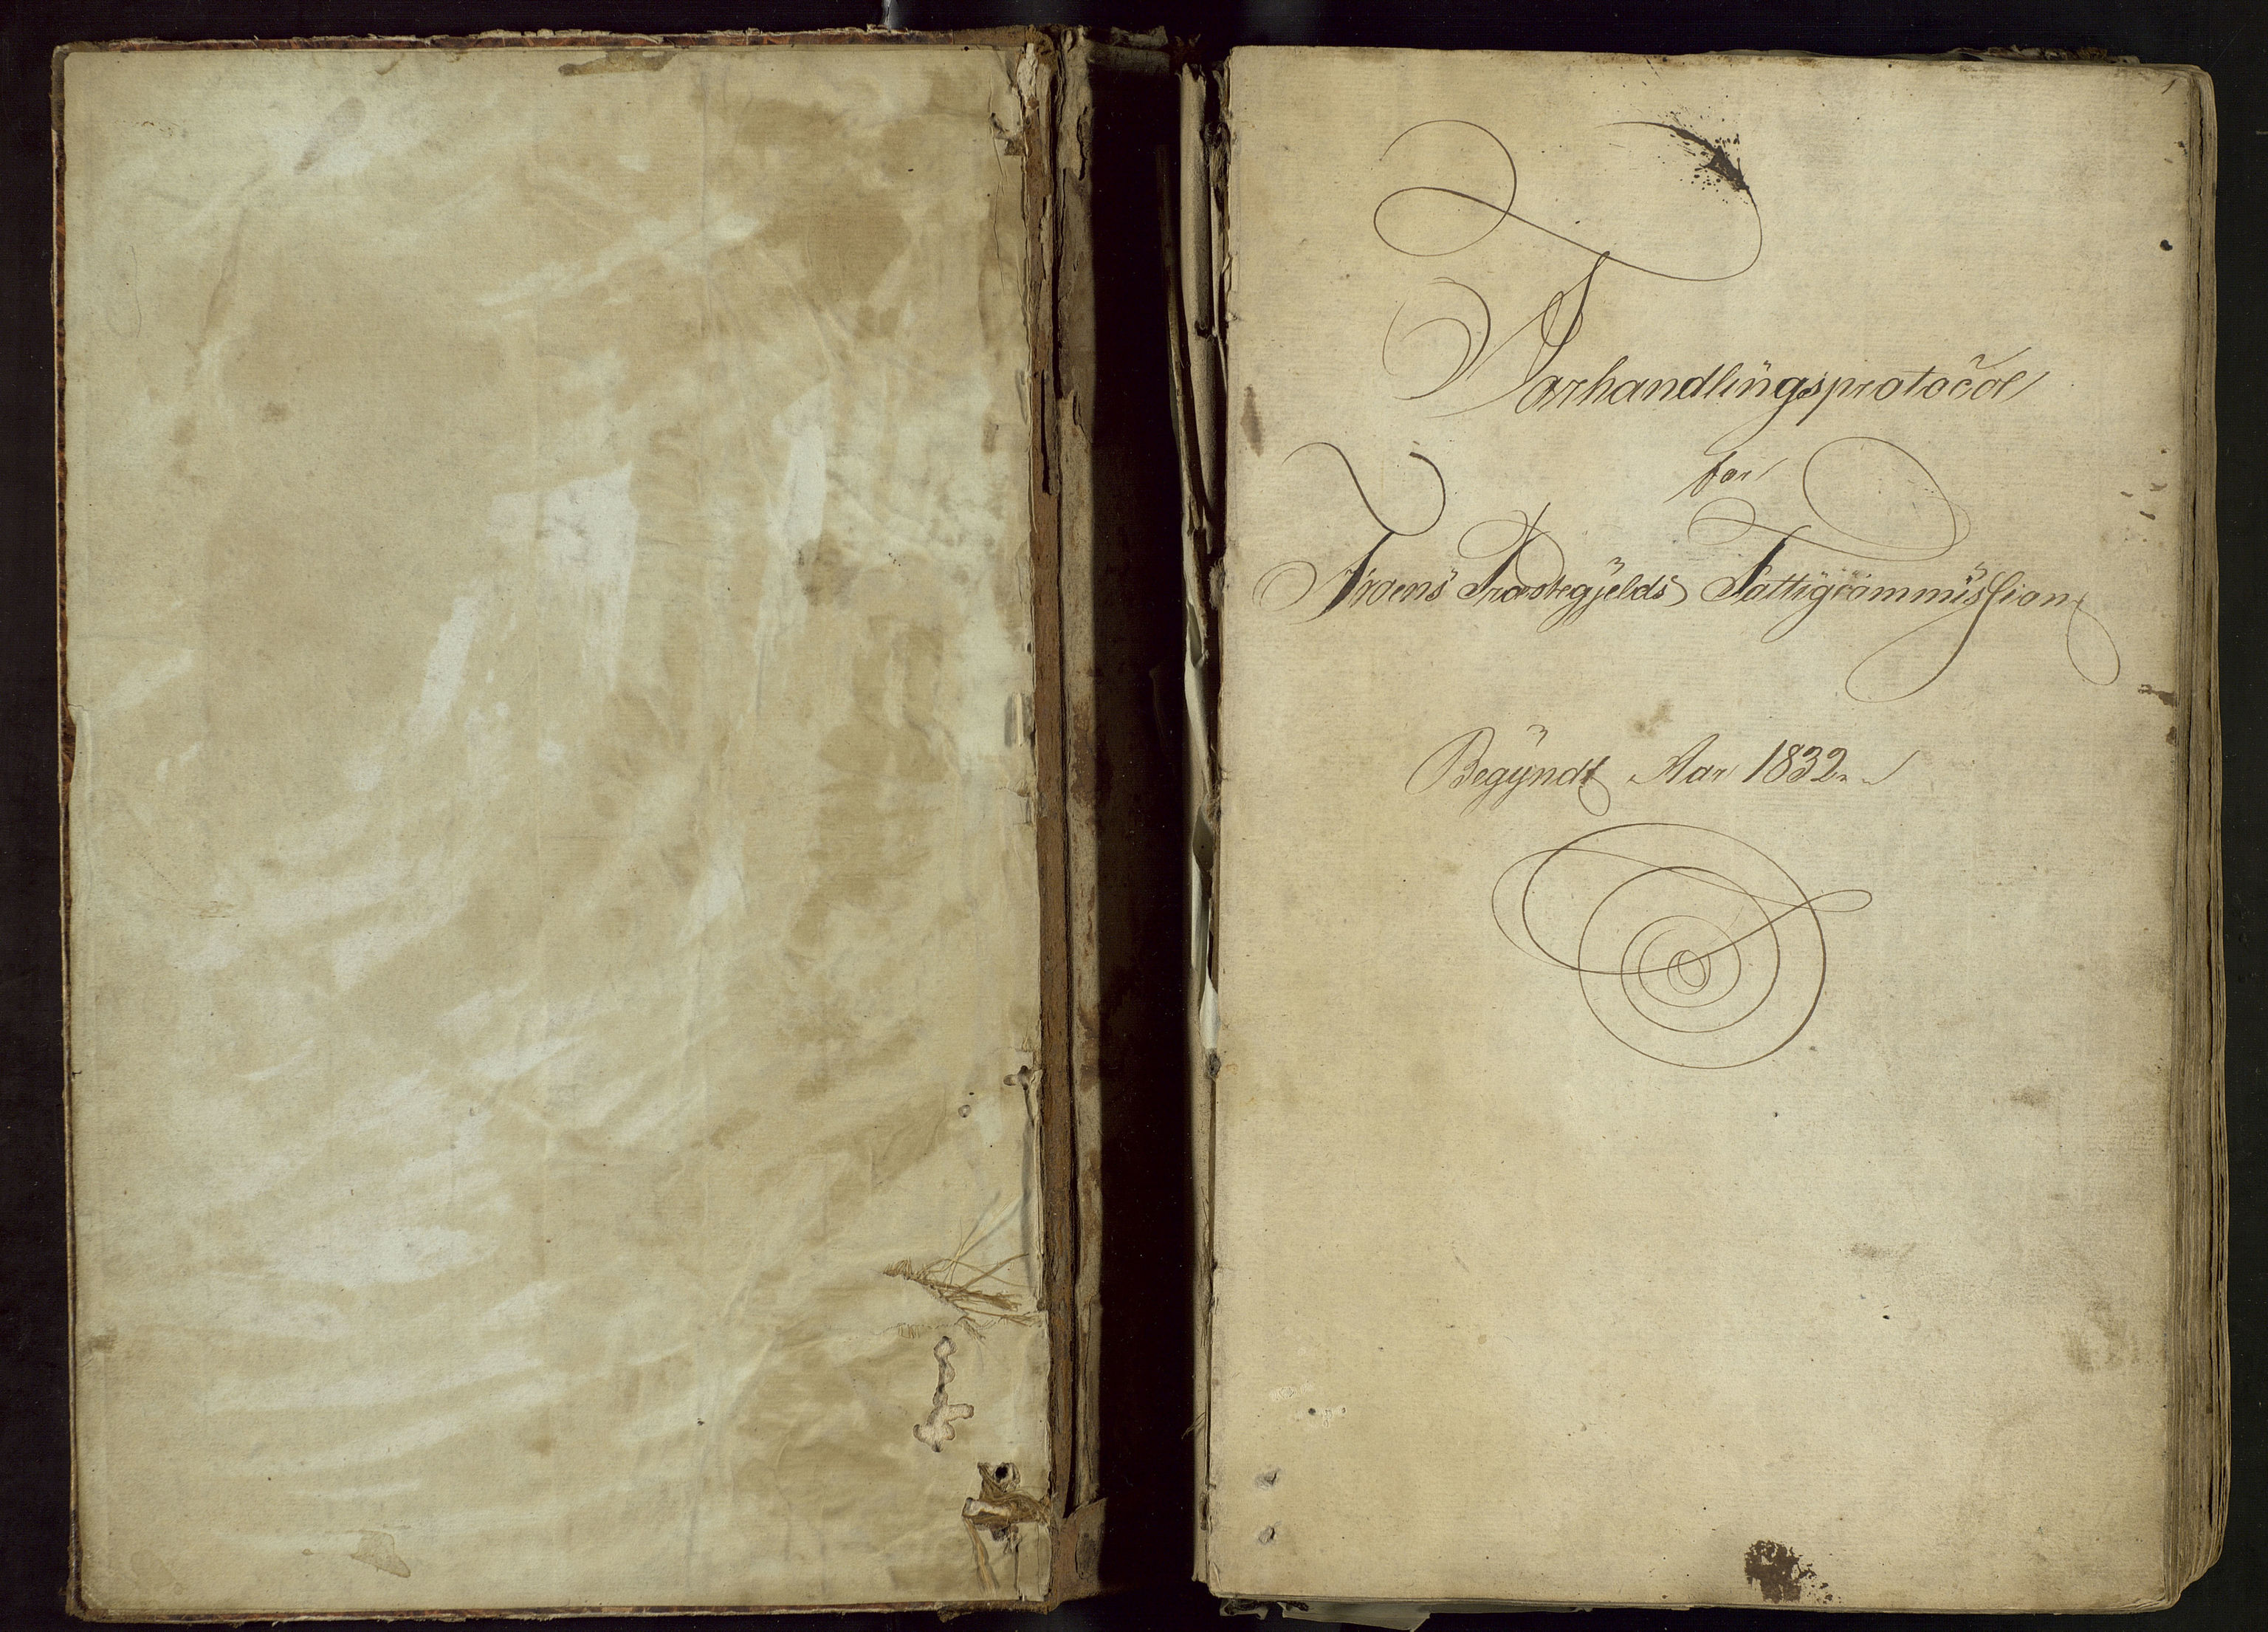 Forhandlingsprotocol
for
Froens Præstegjelds Fattigcommission
Begyndt Aar 1832.